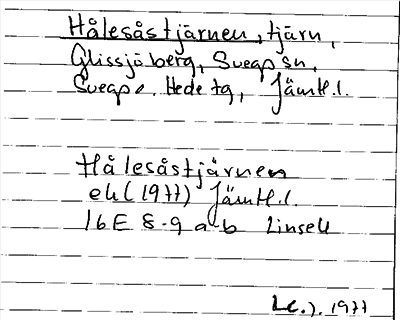 Hålesåstjärnen, tjärn,
Glissjöberg, Svegs sn,
Svegs. Hede tg, Jämtl.l.
Hålesåstjärnen
ek (1977) Jämtl.l.
16E 8-9 a-b Linsell
1977